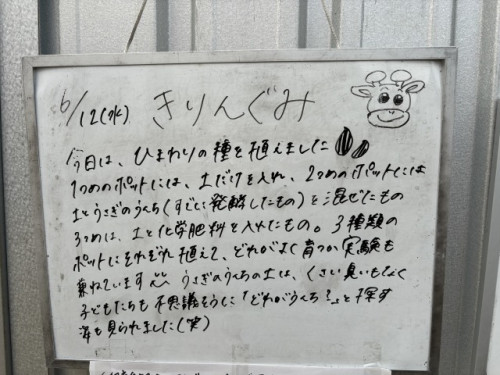 6/12(水) きりんぐみ
今日は、ひまわりの種を植えました
1つめのポットには、土だけを入れ、2つめのポットには
土とうさぎのうんち(すでに発酵したもの)と混ぜたもの
3つめは、土と化学肥料を入れたもの。3種類の
ポットにそれぞれ植えて、どれがよく育つか実験も
兼ねています。うさぎのうんちの土は、くさい臭いもなく
子どもたちも不思議そうに「どれがうんち?」と探す
姿も見られました(笑)